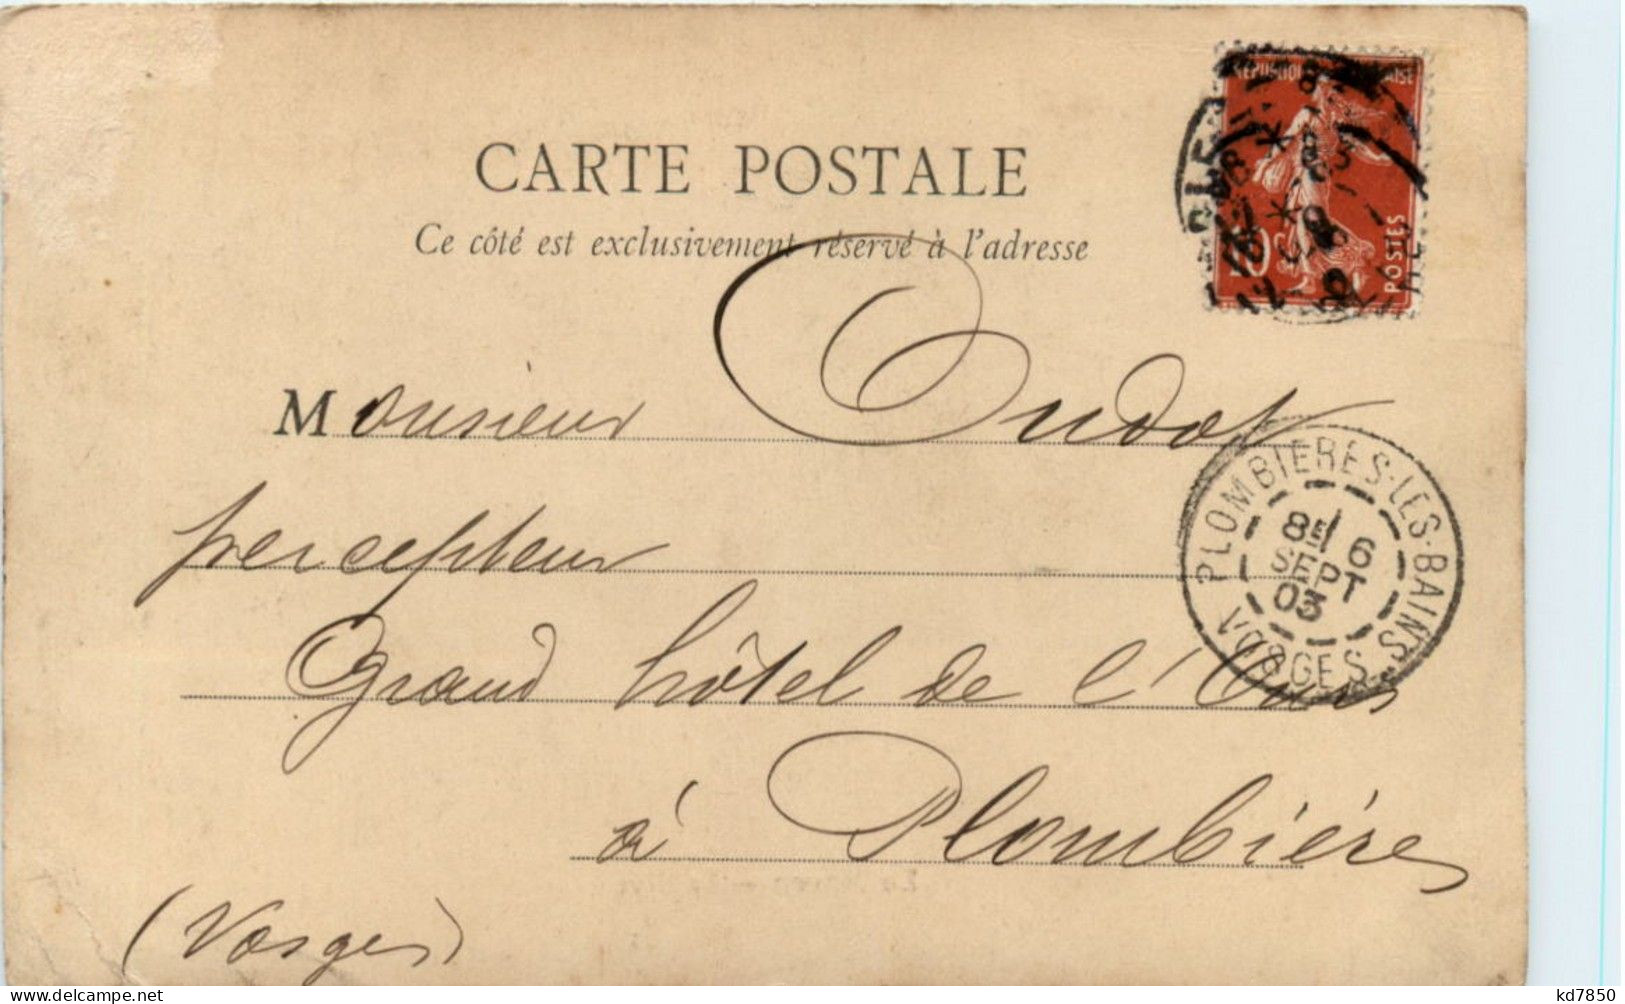 CARTE POSTALE
Ce côté est exclusivement réservé à l'adresse
RÉPUBLIQUE FRANÇAISE
POSTES
Monsieur Oudot
percepteur
Grand hôtel de l'Ours
à Plombières
(Vosges)
PLOMBIÈRES-LES-BAINS
8E 6
SEPT
03
VOSGES
kd7850